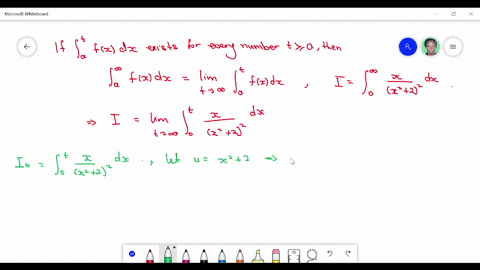 Microsoft Whiteboard
If ∫_a^t f(x) dx exists for every number t ≥ a, then
∫_a^∞ f(x) dx = lim_{t→∞} ∫_a^t f(x) dx , I = ∫_0^∞ x/(x²+2)² dx .
⇒ I = lim_{t→∞} ∫_0^t x/(x²+2)² dx
I₀ = ∫_0^t x/(x²+2)² dx . , let u = x²+2 ⇒